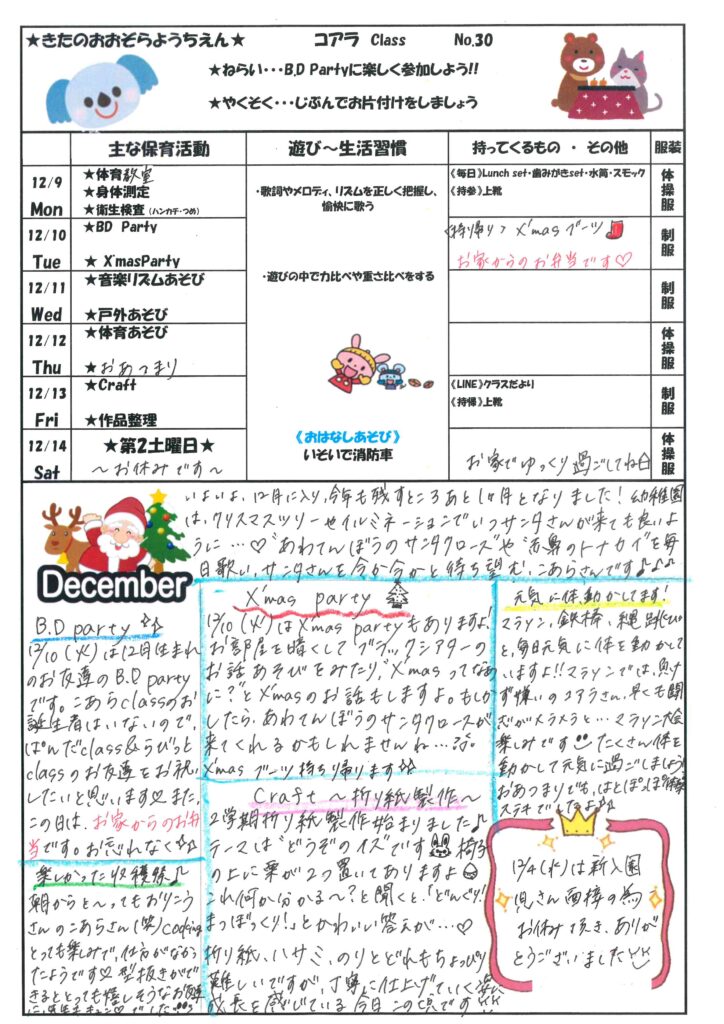 ★きたのおおぞらようちえん★ コアラ Class No.30
★ねらい・・・B.D Partyに楽しく参加しよう!!
★やくそく・・・じぶんでお片付けをしましょう
主な保育活動 遊び～生活習慣 持ってくるもの ・ その他 服装
12/9
Mon
★体育教室
★身体測定
★衛生検査(ハンカチ・つめ)
・歌詞やメロディ、リズムを正しく把握し、
愉快に歌う
《毎日》Lunch set・歯みがきset・水筒・スモック
《持参》上靴
体操服
12/10
Tue
★BD Party
★ X'masParty
<持ち帰り> X'mas ブーツ
お家からのお弁当です♡
制服
12/11
Wed
★音楽リズムあそび
★戸外あそび
・遊びの中で力比べや重さ比べをする
制服
12/12
Thu
★体育あそび
★おあつまり
体操服
12/13
Fri
★Craft
★作品整理
《LINE》クラスだより
《持帰》上靴
制服
12/14
Sat
★第2土曜日★
～お休みです～
《おはなしあそび》
いそいで消防車
お家でゆっくり過ごしてね
体操服
December
いよいよ、12月に入り、今年も残すところあと1ヶ月となりました！幼稚園
は、クリスマスツリーやイルミネーションでいつサンタさんが来ても良いよ
うに…♡"あわてんぼうのサンタクロース"や"赤鼻のトナカイ"を毎
日歌い、サンタさんを今か今かと待ち望む、こあらさんです♪♪♪
B.D party
12/10(火)は12月生まれ
のお友達のB.D party
です。こあらclassのお
誕生者はいないので、
ぱんだclass&らびっと
classのお友達をお祝い
したいと思います♡また、
この日は、お家からのお弁
当です。お忘れなく☆☆
楽しかった収穫祭♪
朝からと～ってもおりこう
さんのこあらさん(笑)cooking
とっても楽しみで、仕方がなかっ
たようです♡型抜きがで
きるととっても嬉しそうなお顔
X'mas party
12/10(火)はX'mas partyもありますよ！
お部屋を暗くしてブラックシアターの
お話あそびをみたり、"X'masってなぁ
に？"とX'masのお話もしますよ。もしか
したら、あわてんぼうのサンタクロースが
来てくれるかもしれませんね…
X'mas ブーツ持ち帰ります☆☆
Craft ～折り紙製作～
2学期折り紙製作始まりました♪
テーマは"どうぞのイス"です 椅子
の上に栗が2つ置いてありますよ
これ何か分かる～？と聞くと、「どんぐり！
まつぼっくり！」とかわいい答えが…♡
折り紙、ハサミ、のりとどれもちょっぴり
難しいですが、丁寧に仕上げていく姿に
成長を感じている今日この頃です
元気に体、動かしてます！
マラソン、鉄棒、縄跳び
と、毎日元気に体を動かして
いますよ!!マラソンでは、負け
ず嫌いのコアラさん、早くも闘
志がメラメラと…マラソン大会
楽しみです たくさん体を
動かして元気に過ごしましょう
12/4(水)は新入園
児さん面接の為
お休み頂き、ありが
とうございました